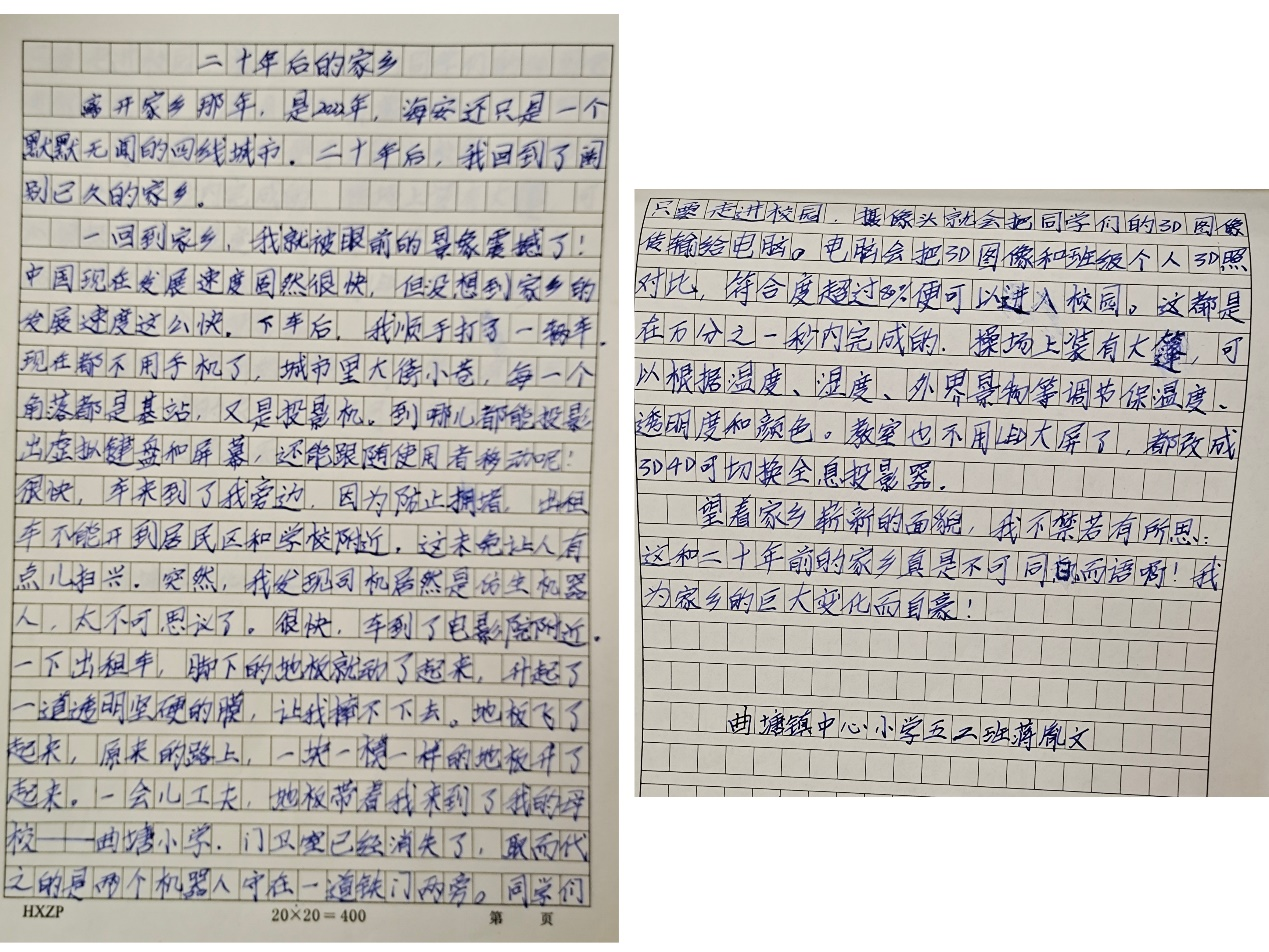 二十年后的家乡
离开家乡那年，是2022年，海安还只是一个
默默无闻的四线城市。二十年后，我回到了阔
别已久的家乡。
一回到家乡，我就被眼前的景象震撼了！
中国现在发展速度固然很快，但没想到家乡的
发展速度这么快。下车后，我顺手打了一辆车。
现在都不用手机了，城市里大街小巷，每一个
角落都是基站，又是投影机。到哪儿都能投影
出虚拟键盘和屏幕，还能跟随使用者移动呢！
很快，车来到了我旁边，因为防止拥堵，出租
车不能开到居民区和学校附近。这未免让人有
点儿扫兴。突然，我发现司机居然是仿生机器
人，太不可思议了。很快，车到了电影院附近。
一下出租车，脚下的地板就动了起来，升起了
一道透明坚硬的膜，让我摔不下去。地板飞了
起来，原来的路上，一块一模一样的地板升了
起来。一会儿工夫，地板带着我来到了我的母
校——曲塘小学。门卫室已经消失了，取而代
之的是两个机器人守在一道铁门两旁。同学们
HXZP 20×20=400 第 页
只要走进校园，摄像头就会把同学们的3D图像
传输给电脑。电脑会把3D图像和班级个人3D照
对比，符合度超过80%便可以进入校园。这都是
在万分之一秒内完成的。操场上装有大篷，可
以根据温度、湿度、外界景物等调节保温度、
透明度和颜色。教室也不用LED大屏了，都改成
3D4D可切换全息投影器。
望着家乡崭新的面貌，我不禁若有所思：
这和二十年前的家乡真是不可同日而语啊！我
为家乡的巨大变化而自豪！
曲塘镇中心小学五二班蒋胤文